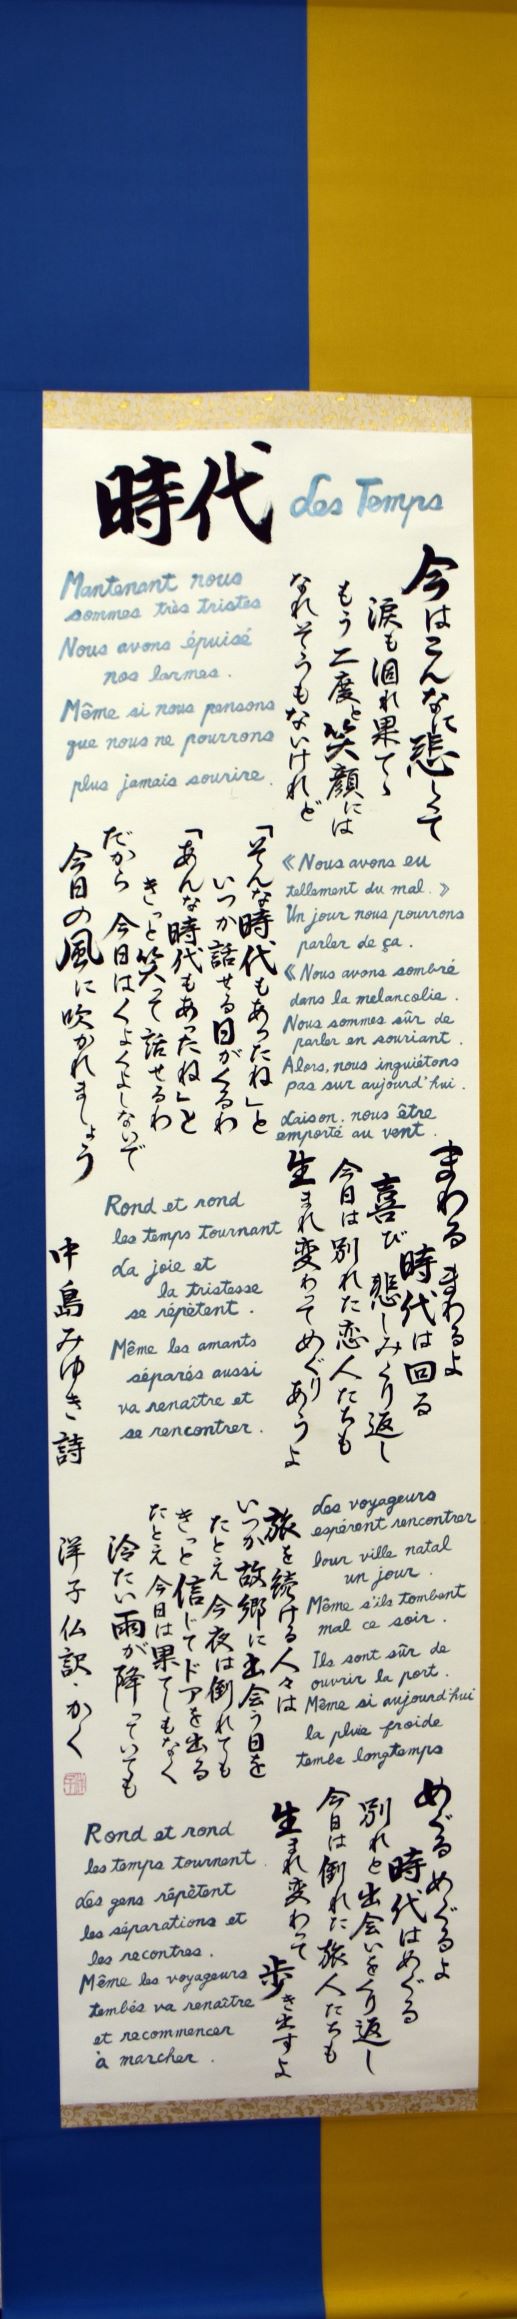 時代
Les Temps
今はこんなに悲しくて
涙も涸れ果てゝ
もう二度と笑顔には
なれそうもないけれど
Mantenant nous
sommes très tristes
Nous avons épuisé
nos larmes.
Même si nous pensons
que nous ne pourrons
plus jamais sourire.
「そんな時代もあったね」と
いつか話せる日がくるわ
「あんな時代もあったね」と
きっと笑って話せるわ
だから 今日はくよくよしないで
今日の風に吹かれましょう
《Nous avons eu
tellement du mal.》
Un jour nous pourrons
parler de ça.
《Nous avons sombré
dans la melancolie.
Nous sommes sûr de
parler en souriant.
Alors, nous inquiétons
pas sur aujourd'hui.
Laison. nous être
emporté au vent.
まわる まわるよ
時代は回る
喜び 悲しみくり返し
今日は別れた恋人たちも
生まれ変わって めぐりあうよ
Rond et rond
les temps tournant
La joie et
la tristesse
se répètent.
Même les amants
séparés aussi
va renaître et
se rencontrer.
旅を続ける人々は
いつか故郷に出会う日を
たとえ今夜は倒れても
きっと信じてドアを出る
たとえ今日は果てしもなく
冷たい雨が降っていても
Les voyageurs
espérent rencontrer
leur ville natal
un jour.
Même s'ils tombent
mal ce soir.
Ils sont sûr de
ouvrir la port.
Même si aujourd'hui
la pluie froide
tembe longtemps
めぐるめぐるよ
時代はめぐる
別れと出会いをくり返し
今日は倒れた旅人たちも
生まれ変わって歩き出すよ
Rond et rond
les temps tournent
Les gens répètent
les séparations et
les recontres.
Même les voyageurs
tembés va renaître
et recommencer
à marcher.
中島みゆき詩
洋子 仏訳・かく